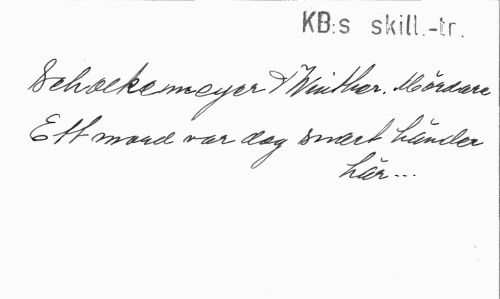 KB:s skill.-tr.
Schoekemeyer & Winther. Mördare
Ett mord var dag snart händer
här...